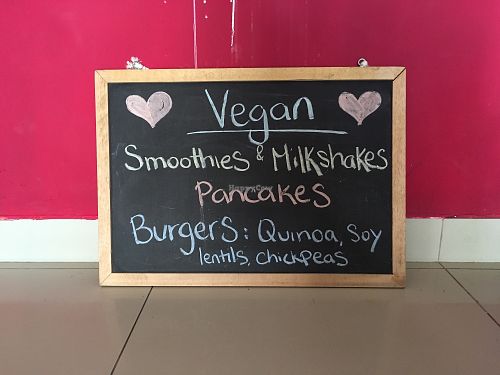 Vegan
Smoothies & Milkshakes
HappyCow
Pancakes
Burgers: Quinoa, Soy
lentils, chickpeas